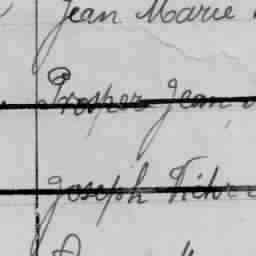 Jean Marie
Prosper Jean
Joseph